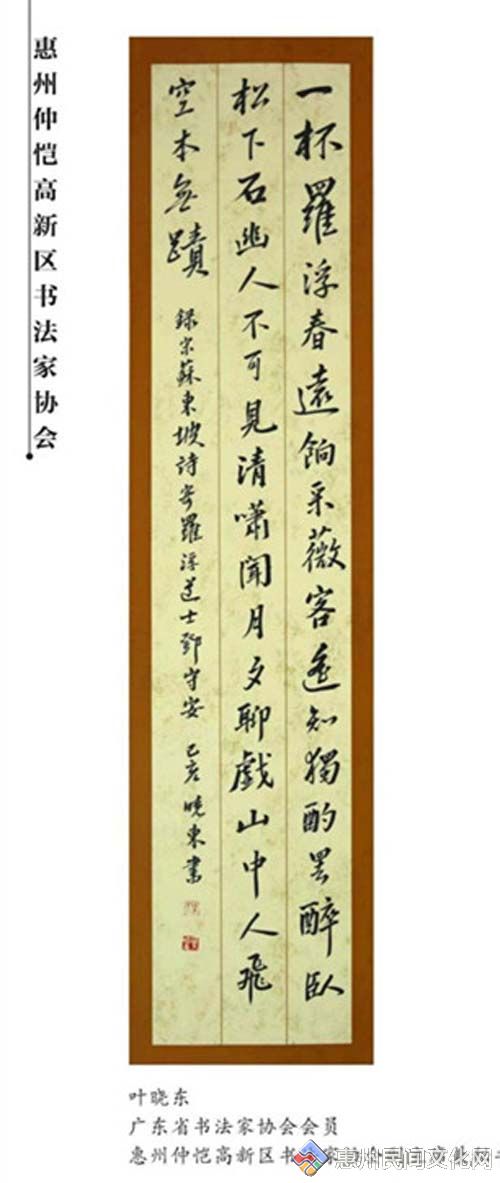 惠州仲恺高新区书法家协会
一杯羅浮春遠餉采薇客遙知獨酌罢醉臥
松下石幽人不可見清嘯聞月夕聊戲山中人飛
空本無蹟
録宋蘇東坡詩寄羅浮道士鄧守安 己亥曉東書
叶晓东
广东省书法家协会会员
惠州仲恺高新区书
惠州民间文化网